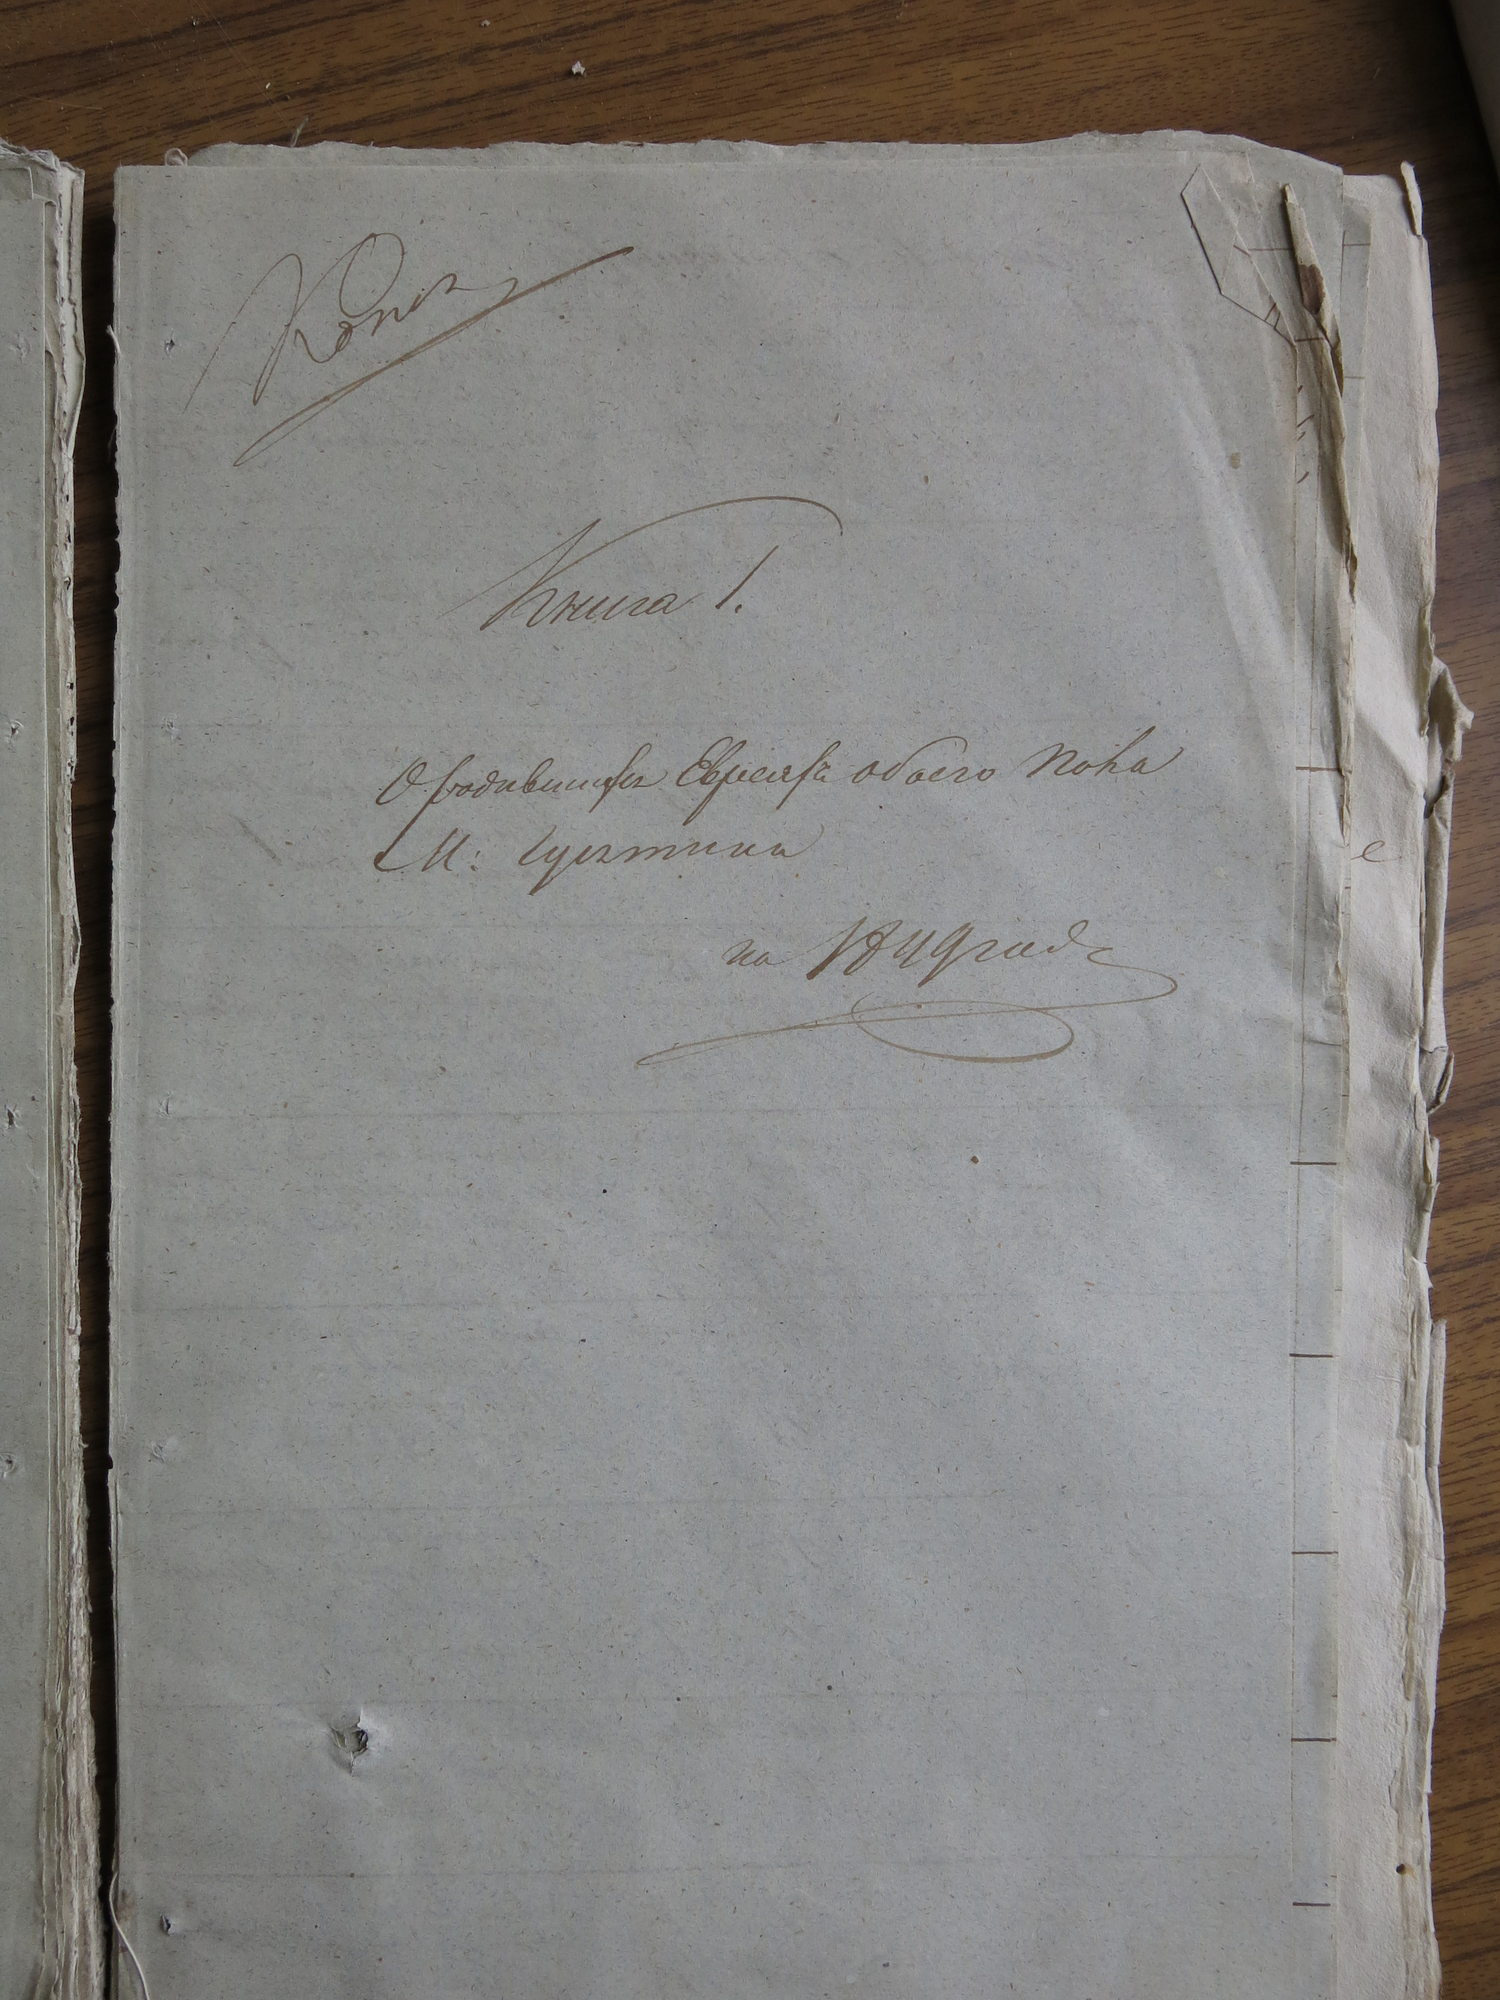 Копія
Книга 1.
О родившихся Евреяхъ обоего пола
М:
на годъ